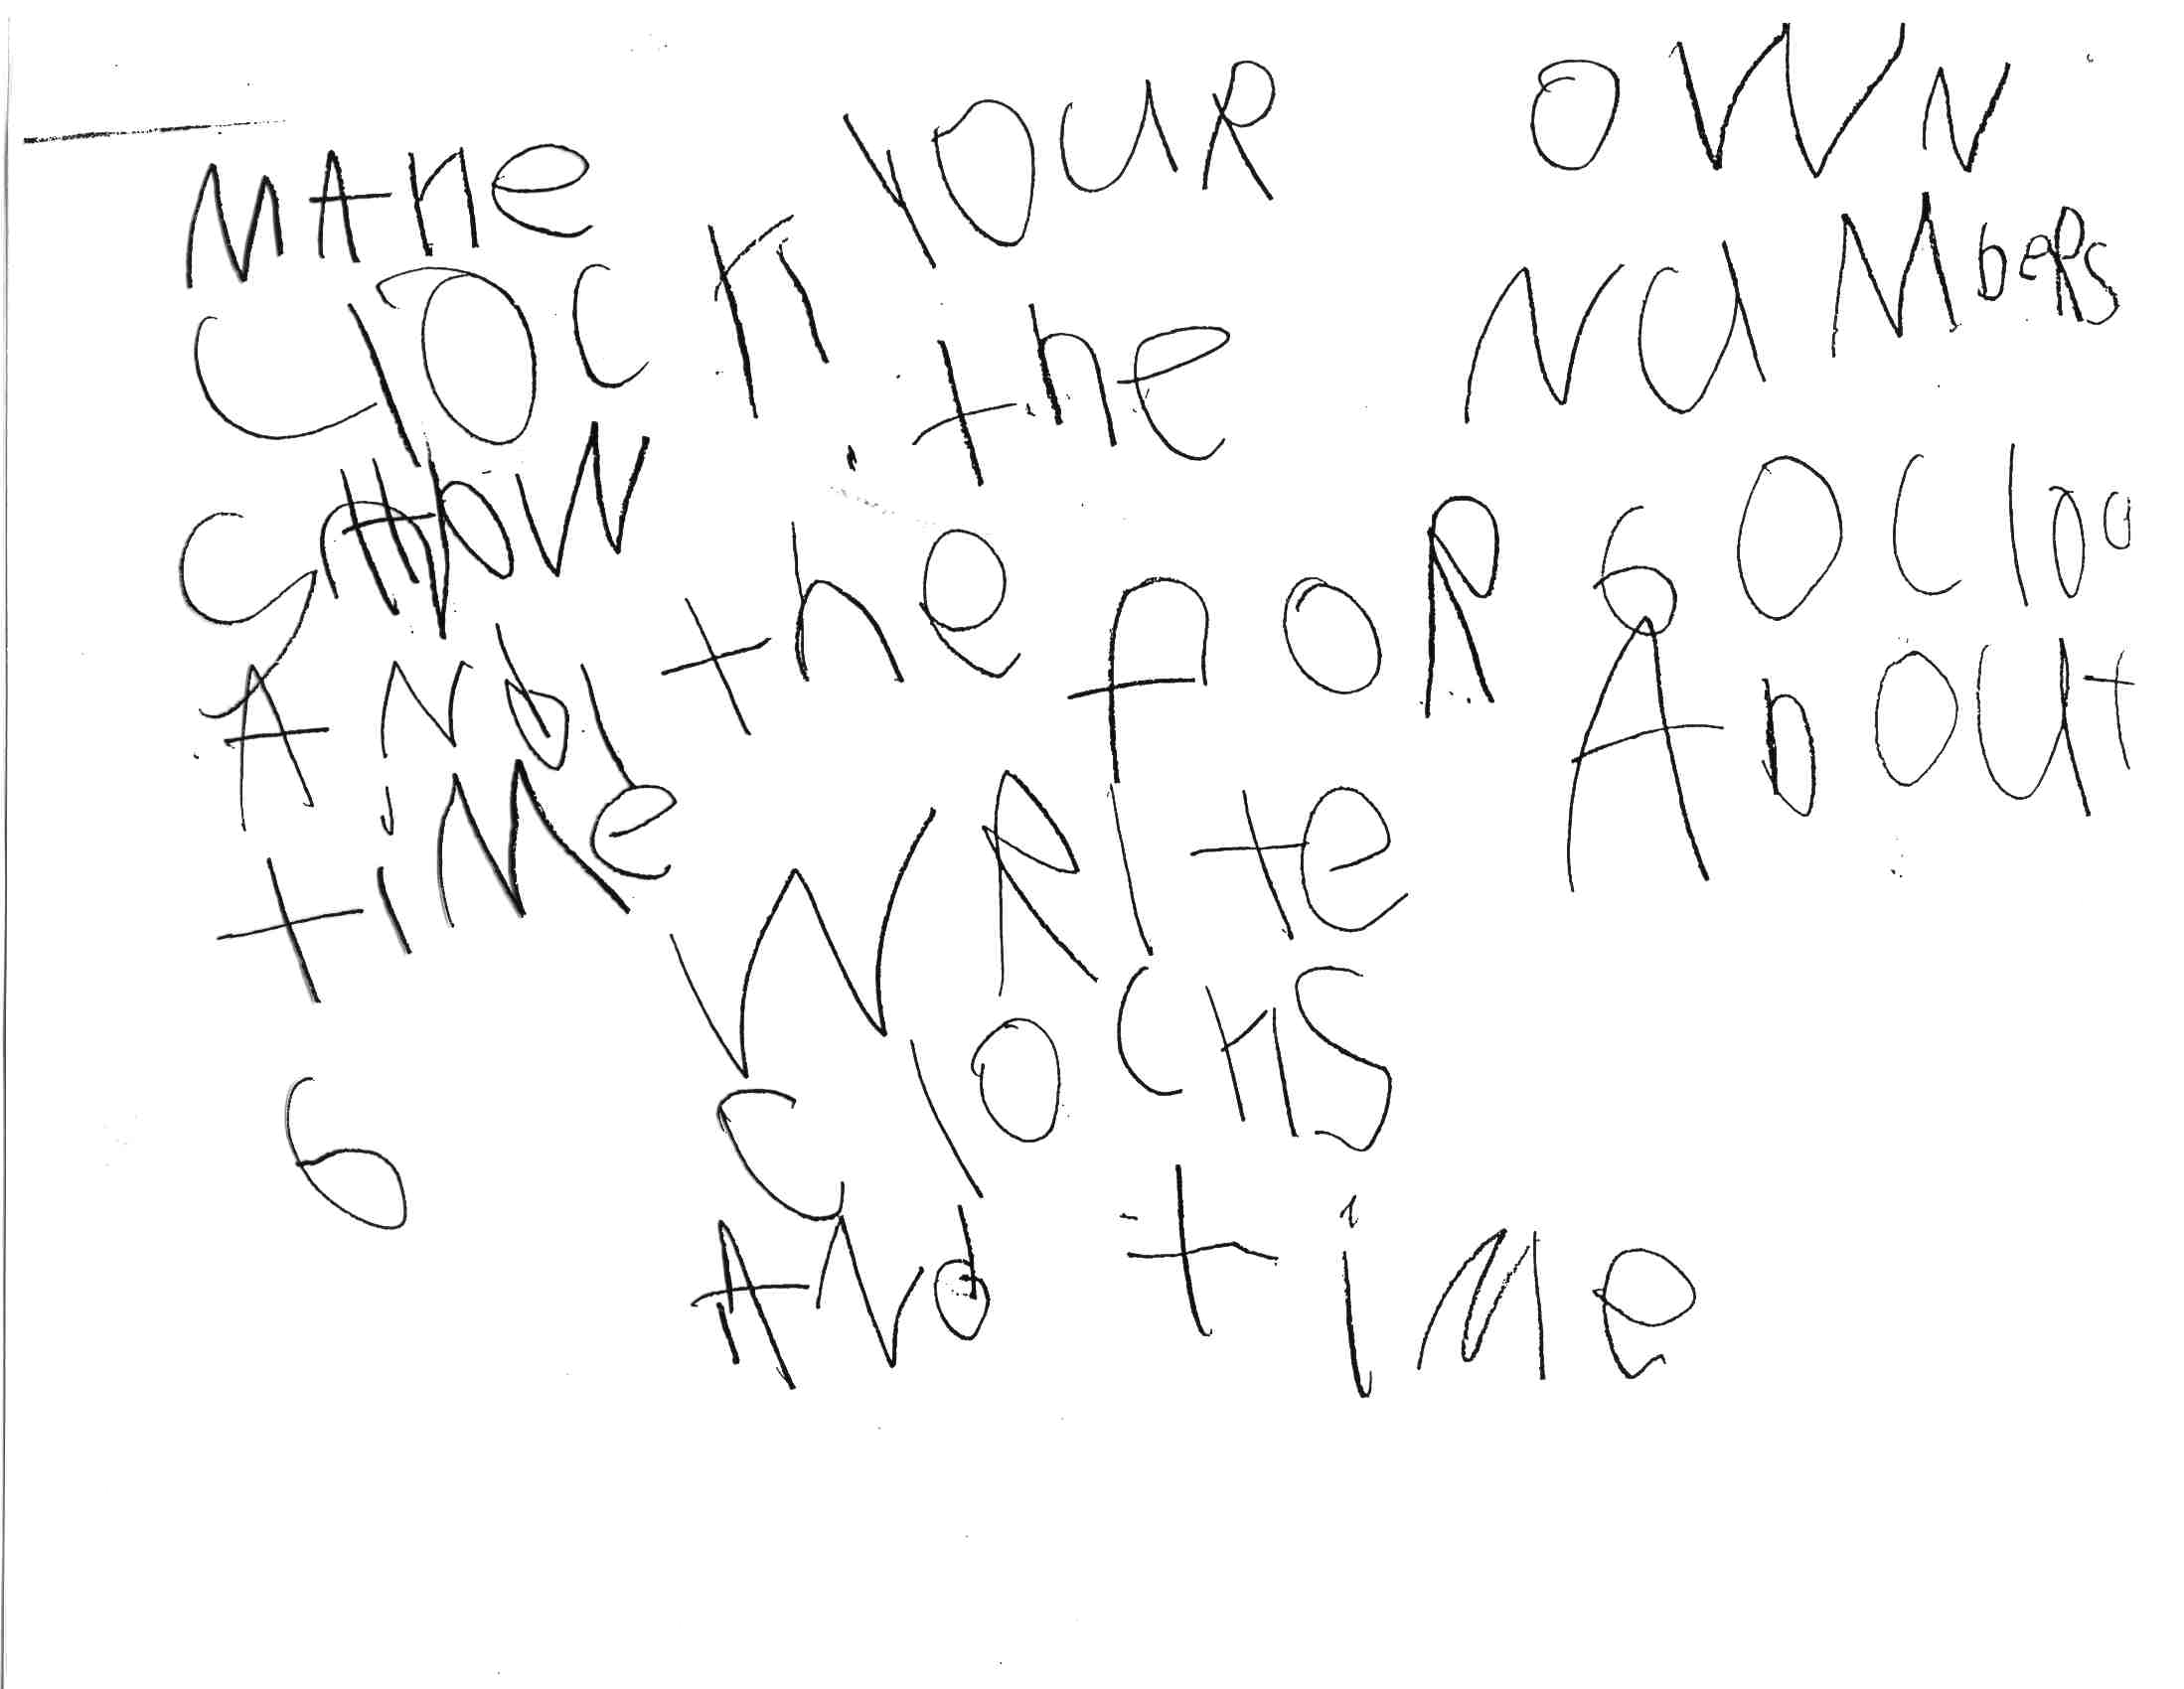 MAKE YOUR OWN
ClOCK the NUMbeRS
SHOW the foR 6 OCloo
ANd time WRIte AbOUt
6 ClOCKS
ANd tiMe